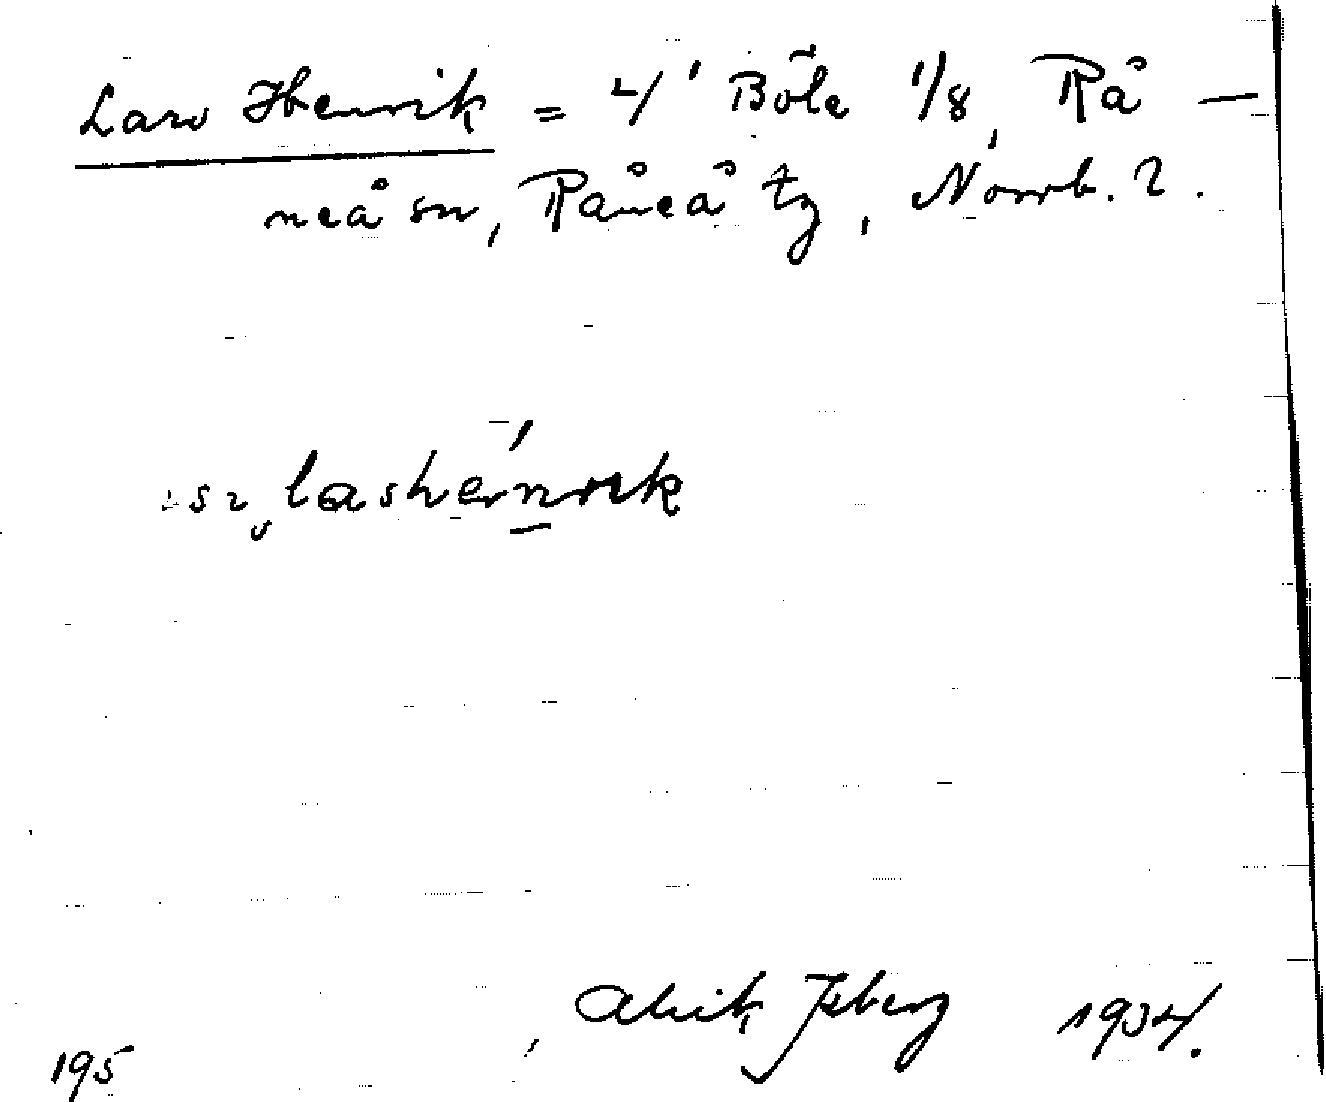 Lars Henrik = 4' Böle 1/8, Rå-
neå sn, Råneå tg, Norrb. l.
lashenrik
Alrik Isberg 1934.
195